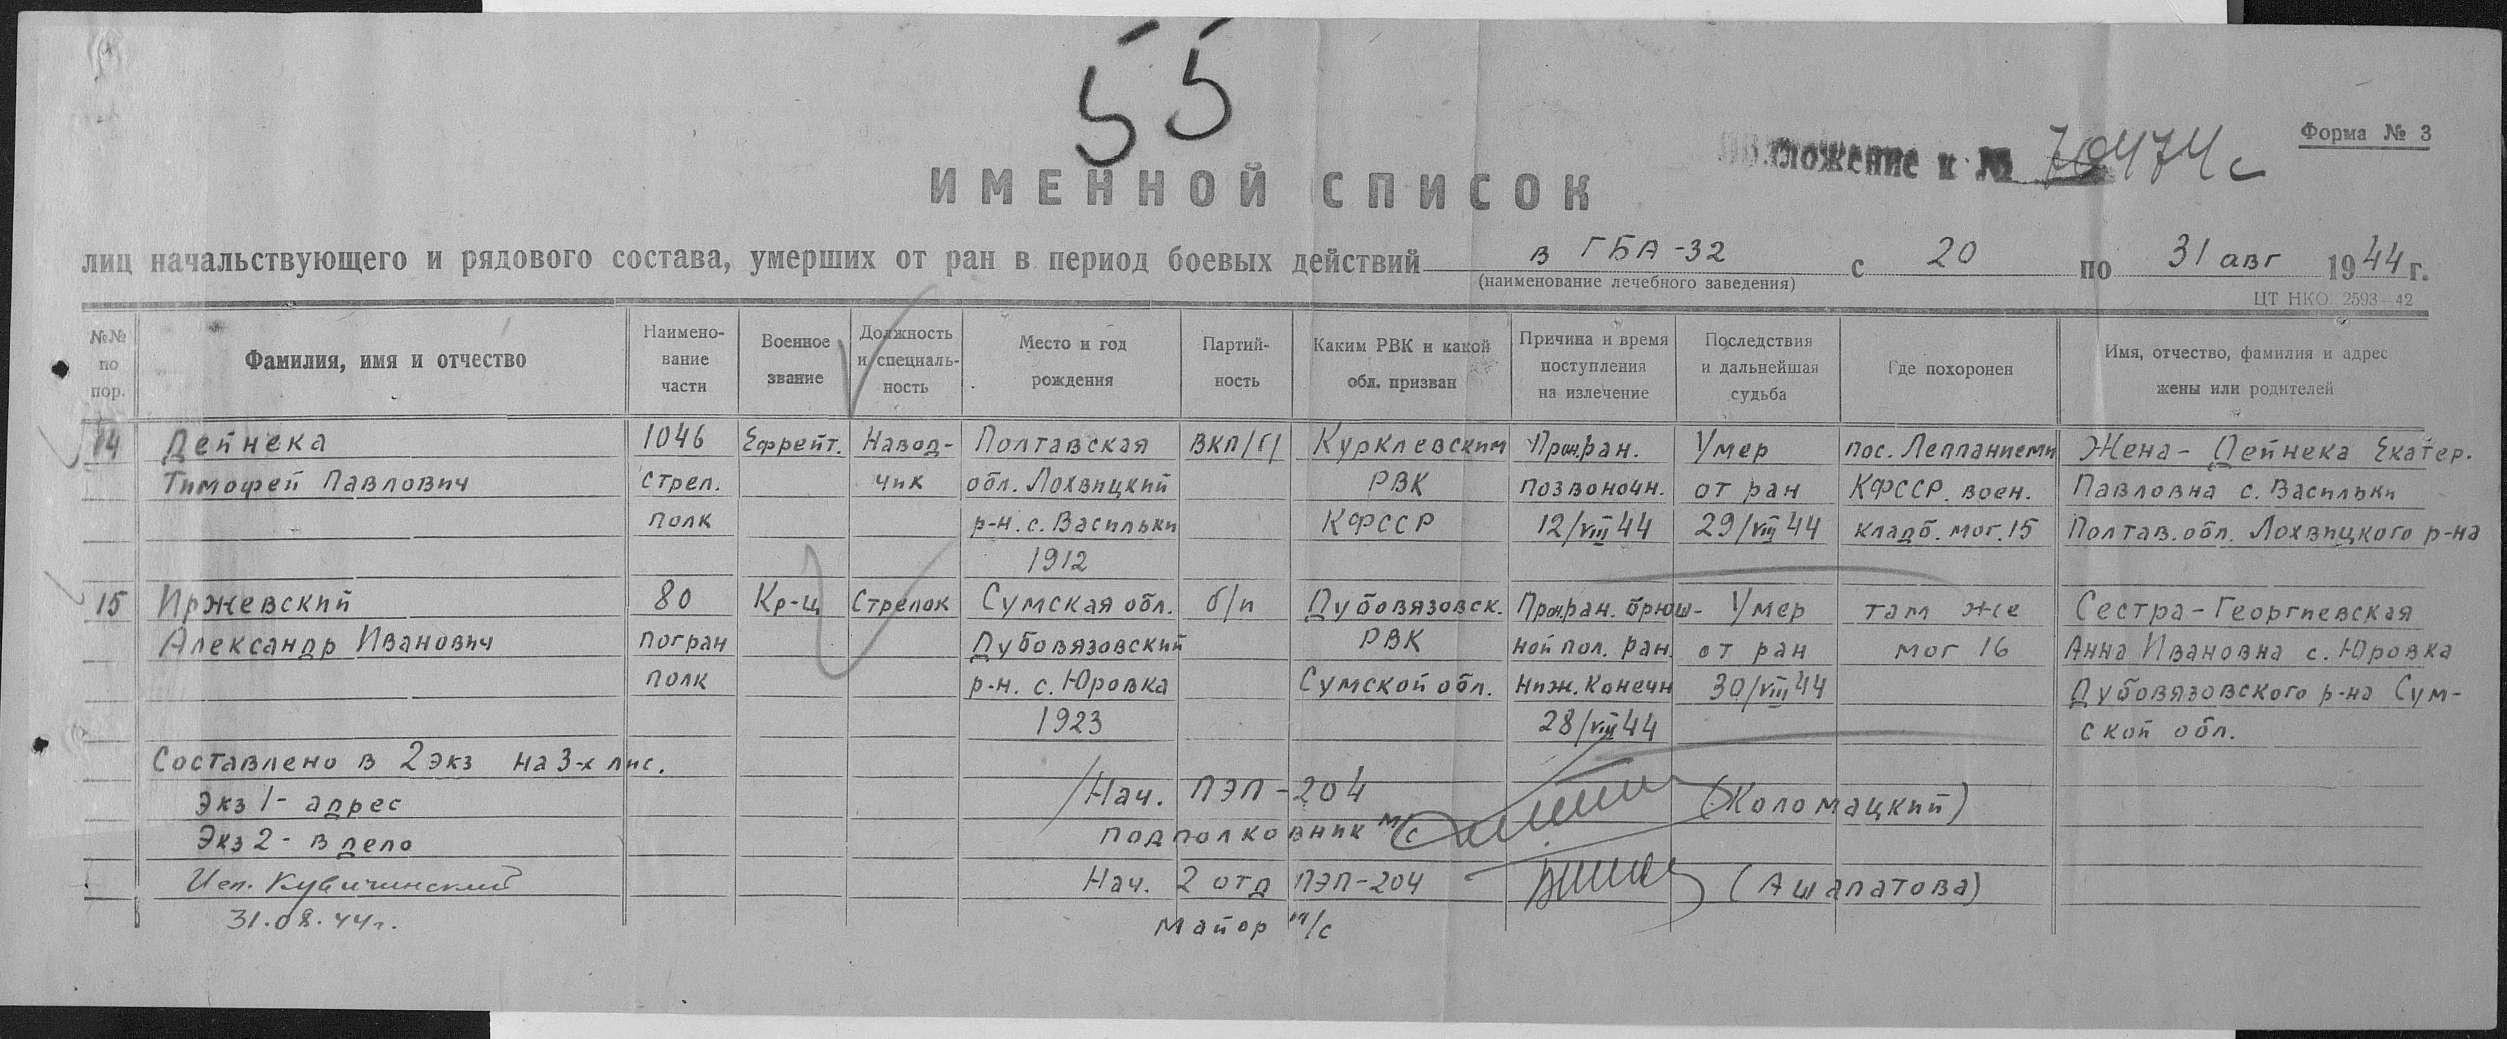 55
Форма № 3
ложение к № 70474с
ИМЕННОЙ СПИСОК
лиц начальствующего и рядового состава, умерших от ран в период боевых действий в ГБА-32 с 20 по 31 авг 1944 г.
(наименование лечебного заведения)
ЦТ НКО 2593—42
№№ по пор.
Фамилия, имя и отчество
Наимено-вание части
Военное звание
Должность и специаль-ность
Место и год рождения
Партий-ность
Каким РВК и какой обл. призван
Причина и время поступления на излечение
Последствия и дальнейшая судьба
Где похоронен
Имя, отчество, фамилия и адрес жены или родителей
14 Дейнека 1046 Ефрейт. Навод- Полтавская ВКП/б/ Курклевским Прон.ран. Умер пос. Леппаниеми Жена - Дейнека Екатер.
Тимофей Павлович стрел. чик обл. Лохвицкий РВК позвоночн. от ран КФССР. воен. Павловна с. Васильки
полк р-н. с. Васильки КФССР 12/VIII 44 29/VIII 44 кладб. мог. 15 Полтав. обл. Лохвицкого р-на
1912
15 Иржевский 80 Кр-ц Стрелок Сумская обл. б/п Дубовязовск. Прон.ран. брюш- Умер там же Сестра - Георгиевская
Александр Иванович погран Дубовязовский РВК ной пол. ран. от ран мог 16 Анна Ивановна с. Юровка
полк р-н. с. Юровка Сумской обл. ниж. конечн 30/VIII 44 Дубовязовского р-на Сум-
1923 28/VIII 44 ской обл.
Составлено в 2 экз на 3-х лис.
Экз 1 - адрес Нач. ПЭП-204 (Коломацкий)
Экз 2 - в дело подполковник м/с
Исп. Кувичинский Нач. 2 отд ПЭП-204 (Ашапатова)
31.08.44г. Майор м/с